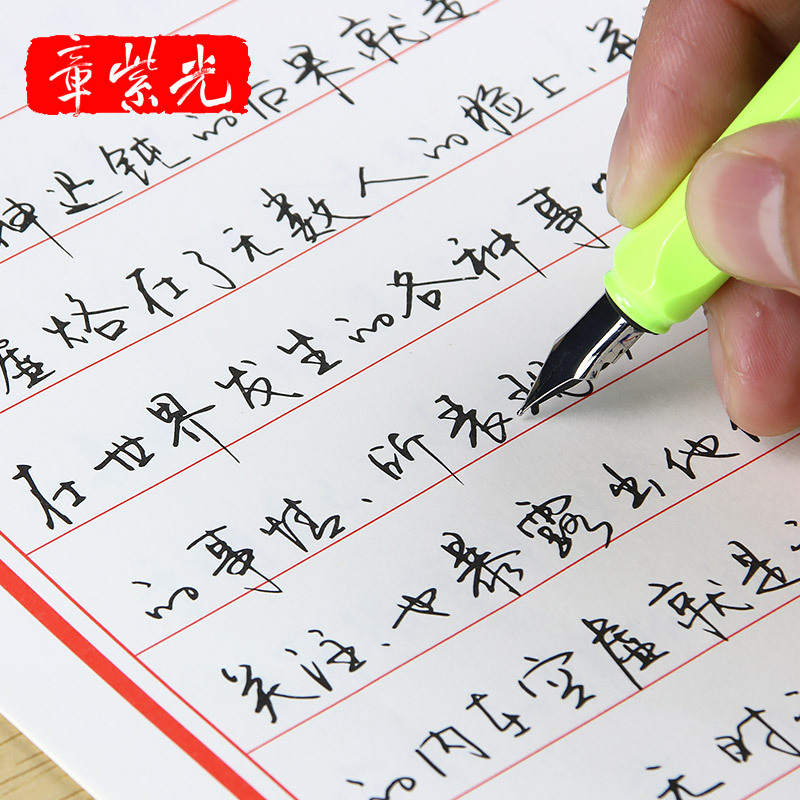 章紫光
神迟钝的后果就是
虚烙在了无数人的脸上、
在世界发生的各种事
的事情、所表现
关注、也暴露出他
的内在空虚就是
无时